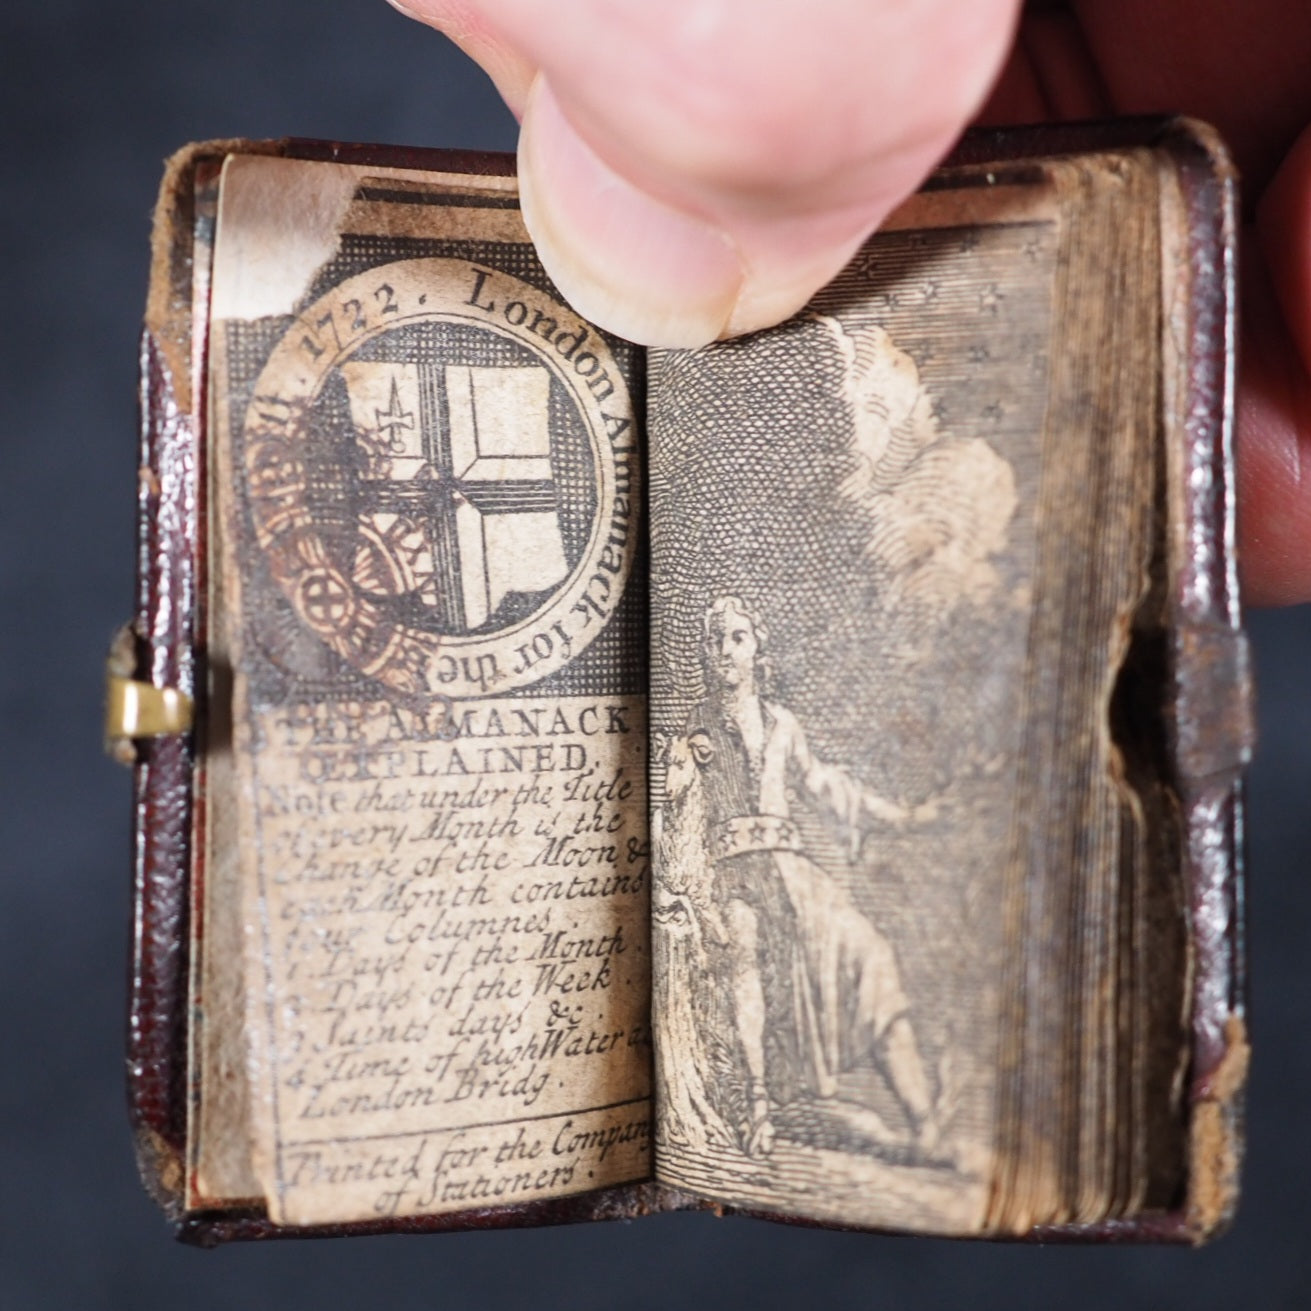 London Almanack for the
1722.
THE ALMANACK
EXPLAINED.
Note that under the Title
of every Month is the
Change of the Moon, &
each Month contains
four Columnes.
1. Days of the Month.
2. Days of the Week.
3. Saints days &c.
4. Time of high Water at
London Bridg.
Printed for the Company
of Stationers.